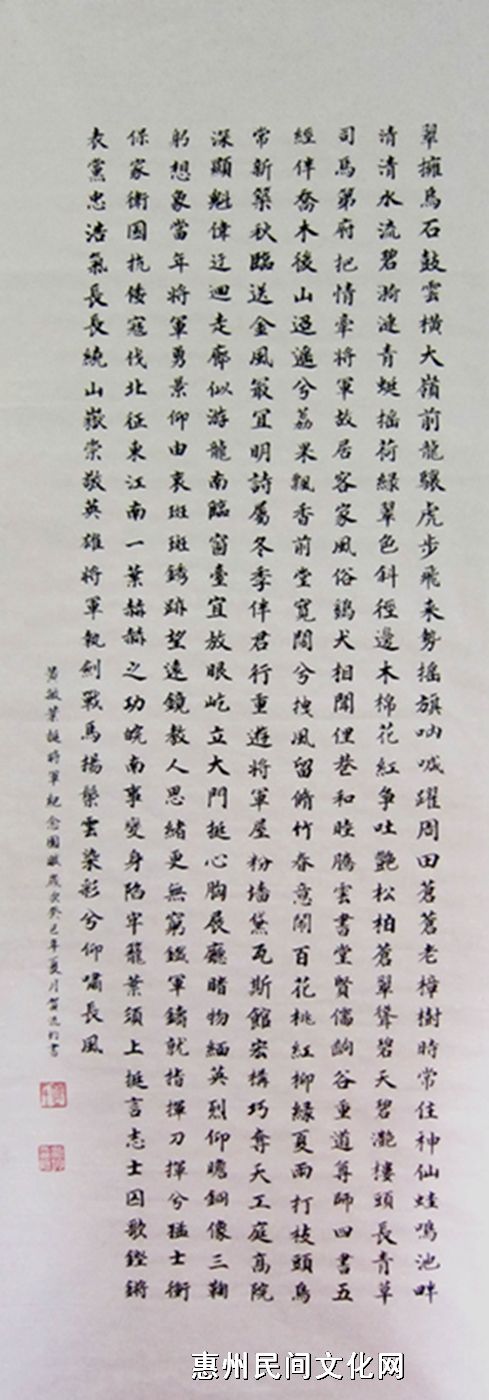 翠擁烏石鼓雲橫大嶺前龍驤虎步飛来勢搖旗吶喊躍周田蒼蒼老樟樹時常住神仙蛙鳴池畔
清清水流碧漪漣青蜓搖荷緑翠色斜徑邊木棉花紅爭吐艷松柏蒼翠聳碧天碧灘樓頭長青草
司馬第府把情牽將軍故居客家風俗鷄犬相聞俚巷和睦騰雲書堂賢儒齣谷重道尊師四書五
經伴喬木後山逕遙兮荔果飄香前堂寬闊兮拽風留脩竹春意鬧百花桃紅柳緑夏雨打枝頭鳥
常新築秋臨送金風最宜明詩屬冬季伴君行重遊將軍屋粉墻黛瓦斯館宏構巧奪天工庭高院
深顯魁偉迂迴走廊似游龍南臨窗臺宜放眼屹立大門挺心胸展廳睹物緬英烈仰瞻銅像三鞠
躬想象當年將軍勇景仰由衷斑斑銹跡望遠鏡教人思緒更無窮鐵軍鑄就指揮刀揮兮猛士衝
保家衛国抗倭寇伐北征東江南一葉赫赫之功皖南事变身陷牢籠葉須上挺言志士囚歌鏗鏘
表黨忠浩氣長長繞山嶽崇敬英雄將軍執剑戰馬揚鬃雲染彩兮仰嘯長風
葉挺將軍紀念園賦歲次癸巳年夏月
惠州民间文化网